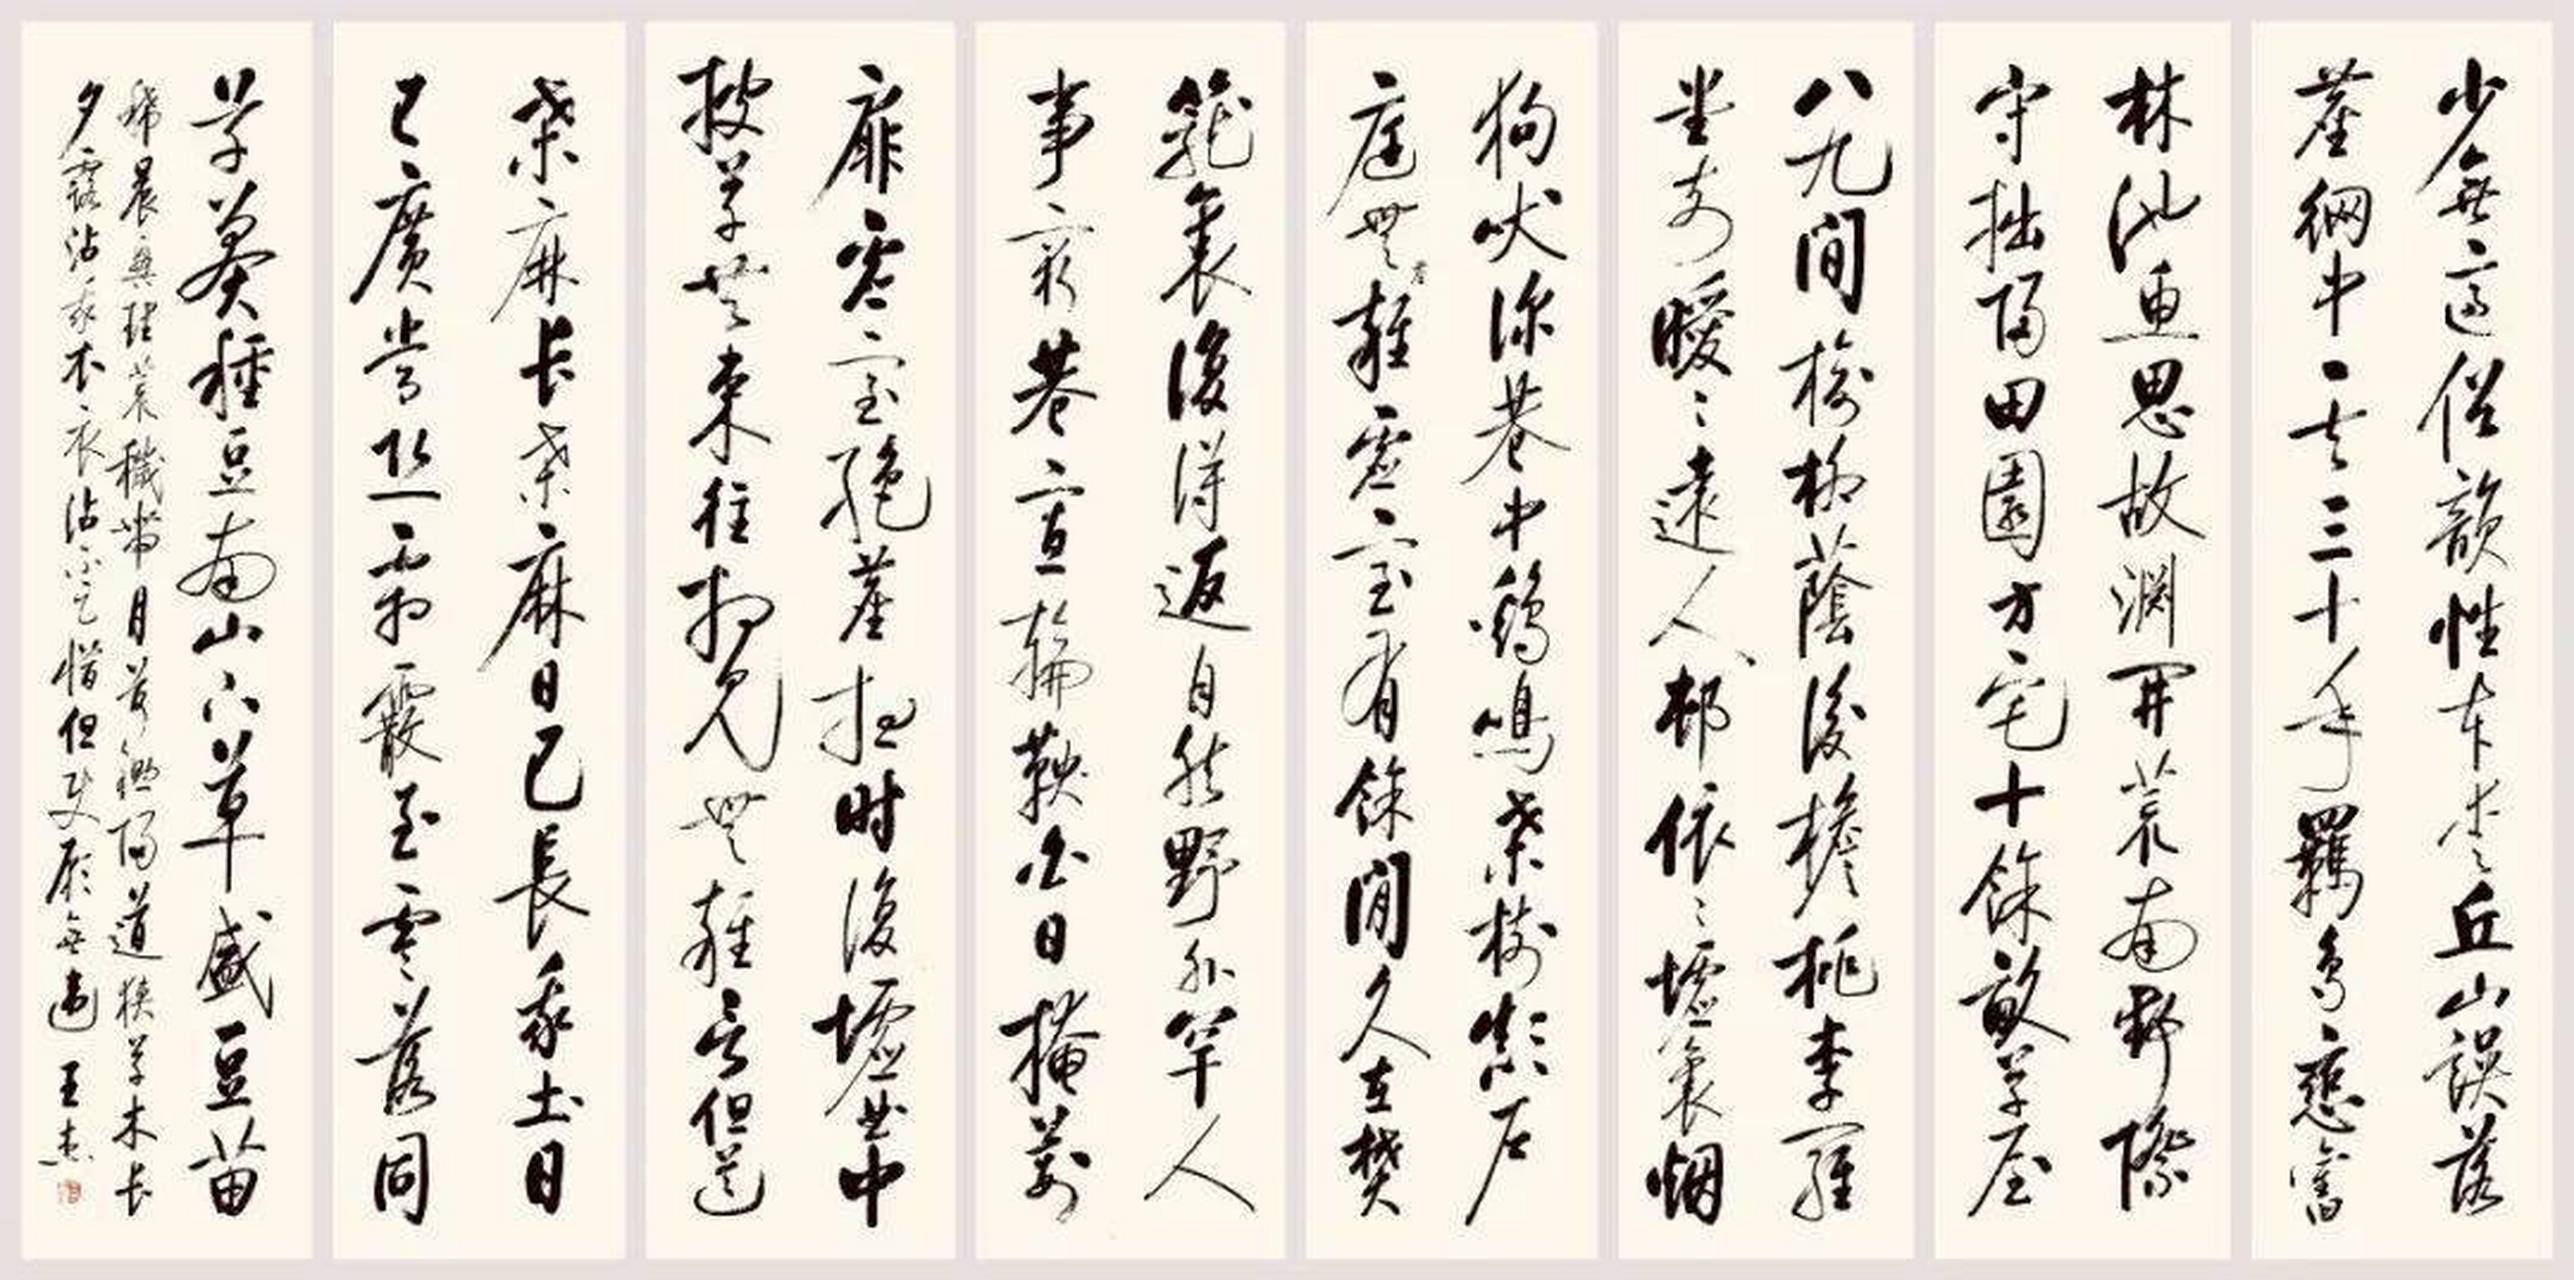 少無適俗韻性本愛丘山誤落
塵網中一去三十年羈鳥戀舊
林池魚思故淵開荒南野際
守拙歸田園方宅十餘畝草屋
八九間榆柳蔭後檐桃李羅
堂前曖〻遠人邨依〻墟裏烟
狗吠深巷中鷄鳴桑樹顛戶
庭無塵雜虛室有餘閒久在樊
籠裏復得返自然野外罕人
事窮巷寡輪鞅白日掩荆
扉虛室絕塵想时復墟曲中
披草共來往相見無雜言但道
桑麻长桑麻日已長我土日
已廣常恐霜霰至零落同
草莽種豆南山下草盛豆苗
稀晨興理荒穢帶月荷鋤歸道狹草木长
夕露沾我衣沾不足惜但使願無違 王杰